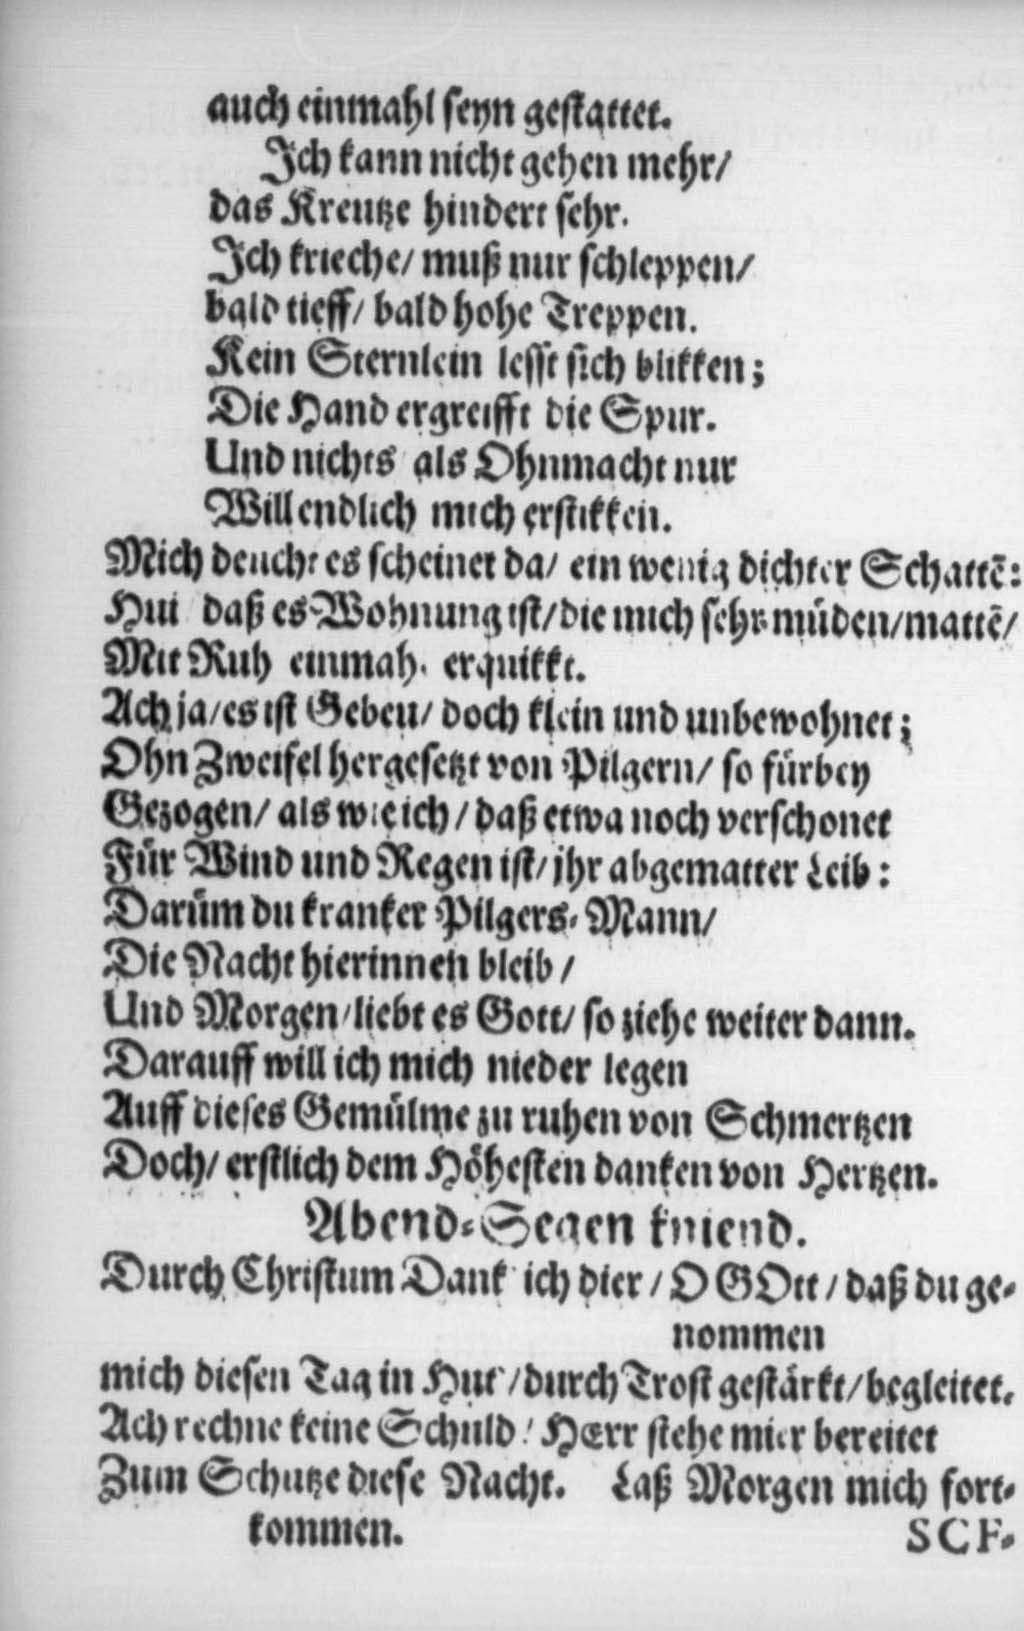 auch einmahl seyn gestattet.
Ich kann nicht gehen mehr/
das Kreutze hindert sehr.
Ich krieche/ muß nur schleppen/
bald tieff/ bald hohe Treppen.
Kein Sternlein lesst sich blikken;
Die Hand ergreifft die Spur.
Und nichts als Ohnmacht nur
Will endlich mich erstikken.
Mich deucht es scheinet da/ ein wenig dichter Schattē:
Hui daß es Wohnung ist/ die mich sehr müden/ mattē/
Mit Ruh einmahl erquikkt.
Ach ja/ es ist Gebeu/ doch klein und unbewohnet;
Ohn Zweifel hergesetzt von Pilgern/ so fürbey
Gezogen/ als wie ich/ daß etwa noch verschonet
Für Wind und Regen ist/ jhr abgematter Leib:
Darüm du kranker Pilgers-Mann/
Die Nacht hierinnen bleib/
Und Morgen/ liebt es Gott/ so ziehe weiter dann.
Darauff will ich mich nieder legen
Auff dieses Gemülme zu ruhen von Schmertzen
Doch/ erstlich dem Höhesten danken von Hertzen.
Abend-Segen kniend.
Durch Christum Dank ich dier/ O GOtt/ daß du ge-
nommen
mich diesen Tag in Hut/ durch Trost gestärkt/ begleitet.
Ach rechne keine Schuld! HErr stehe mier bereitet
Zum Schutze diese Nacht. Laß Morgen mich fort-
kommen.
SCF-